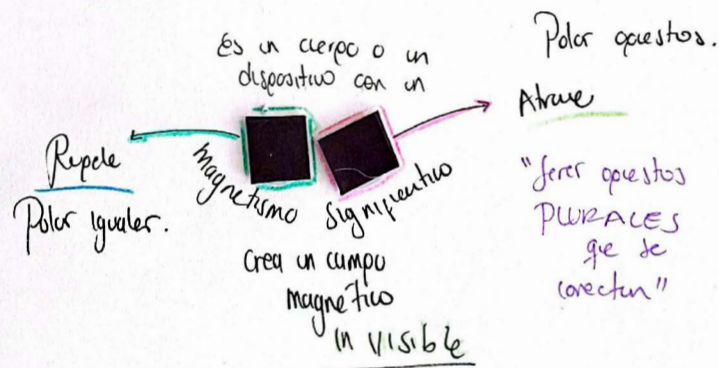 Es un cuerpo o un
dispositivo con un
magnetismo significativo
crea un campo
magnético
invisible
Repele
Polos iguales.
Polos opuestos.
Atrae
"Seres opuestos
PLURALES
que se
conectan"